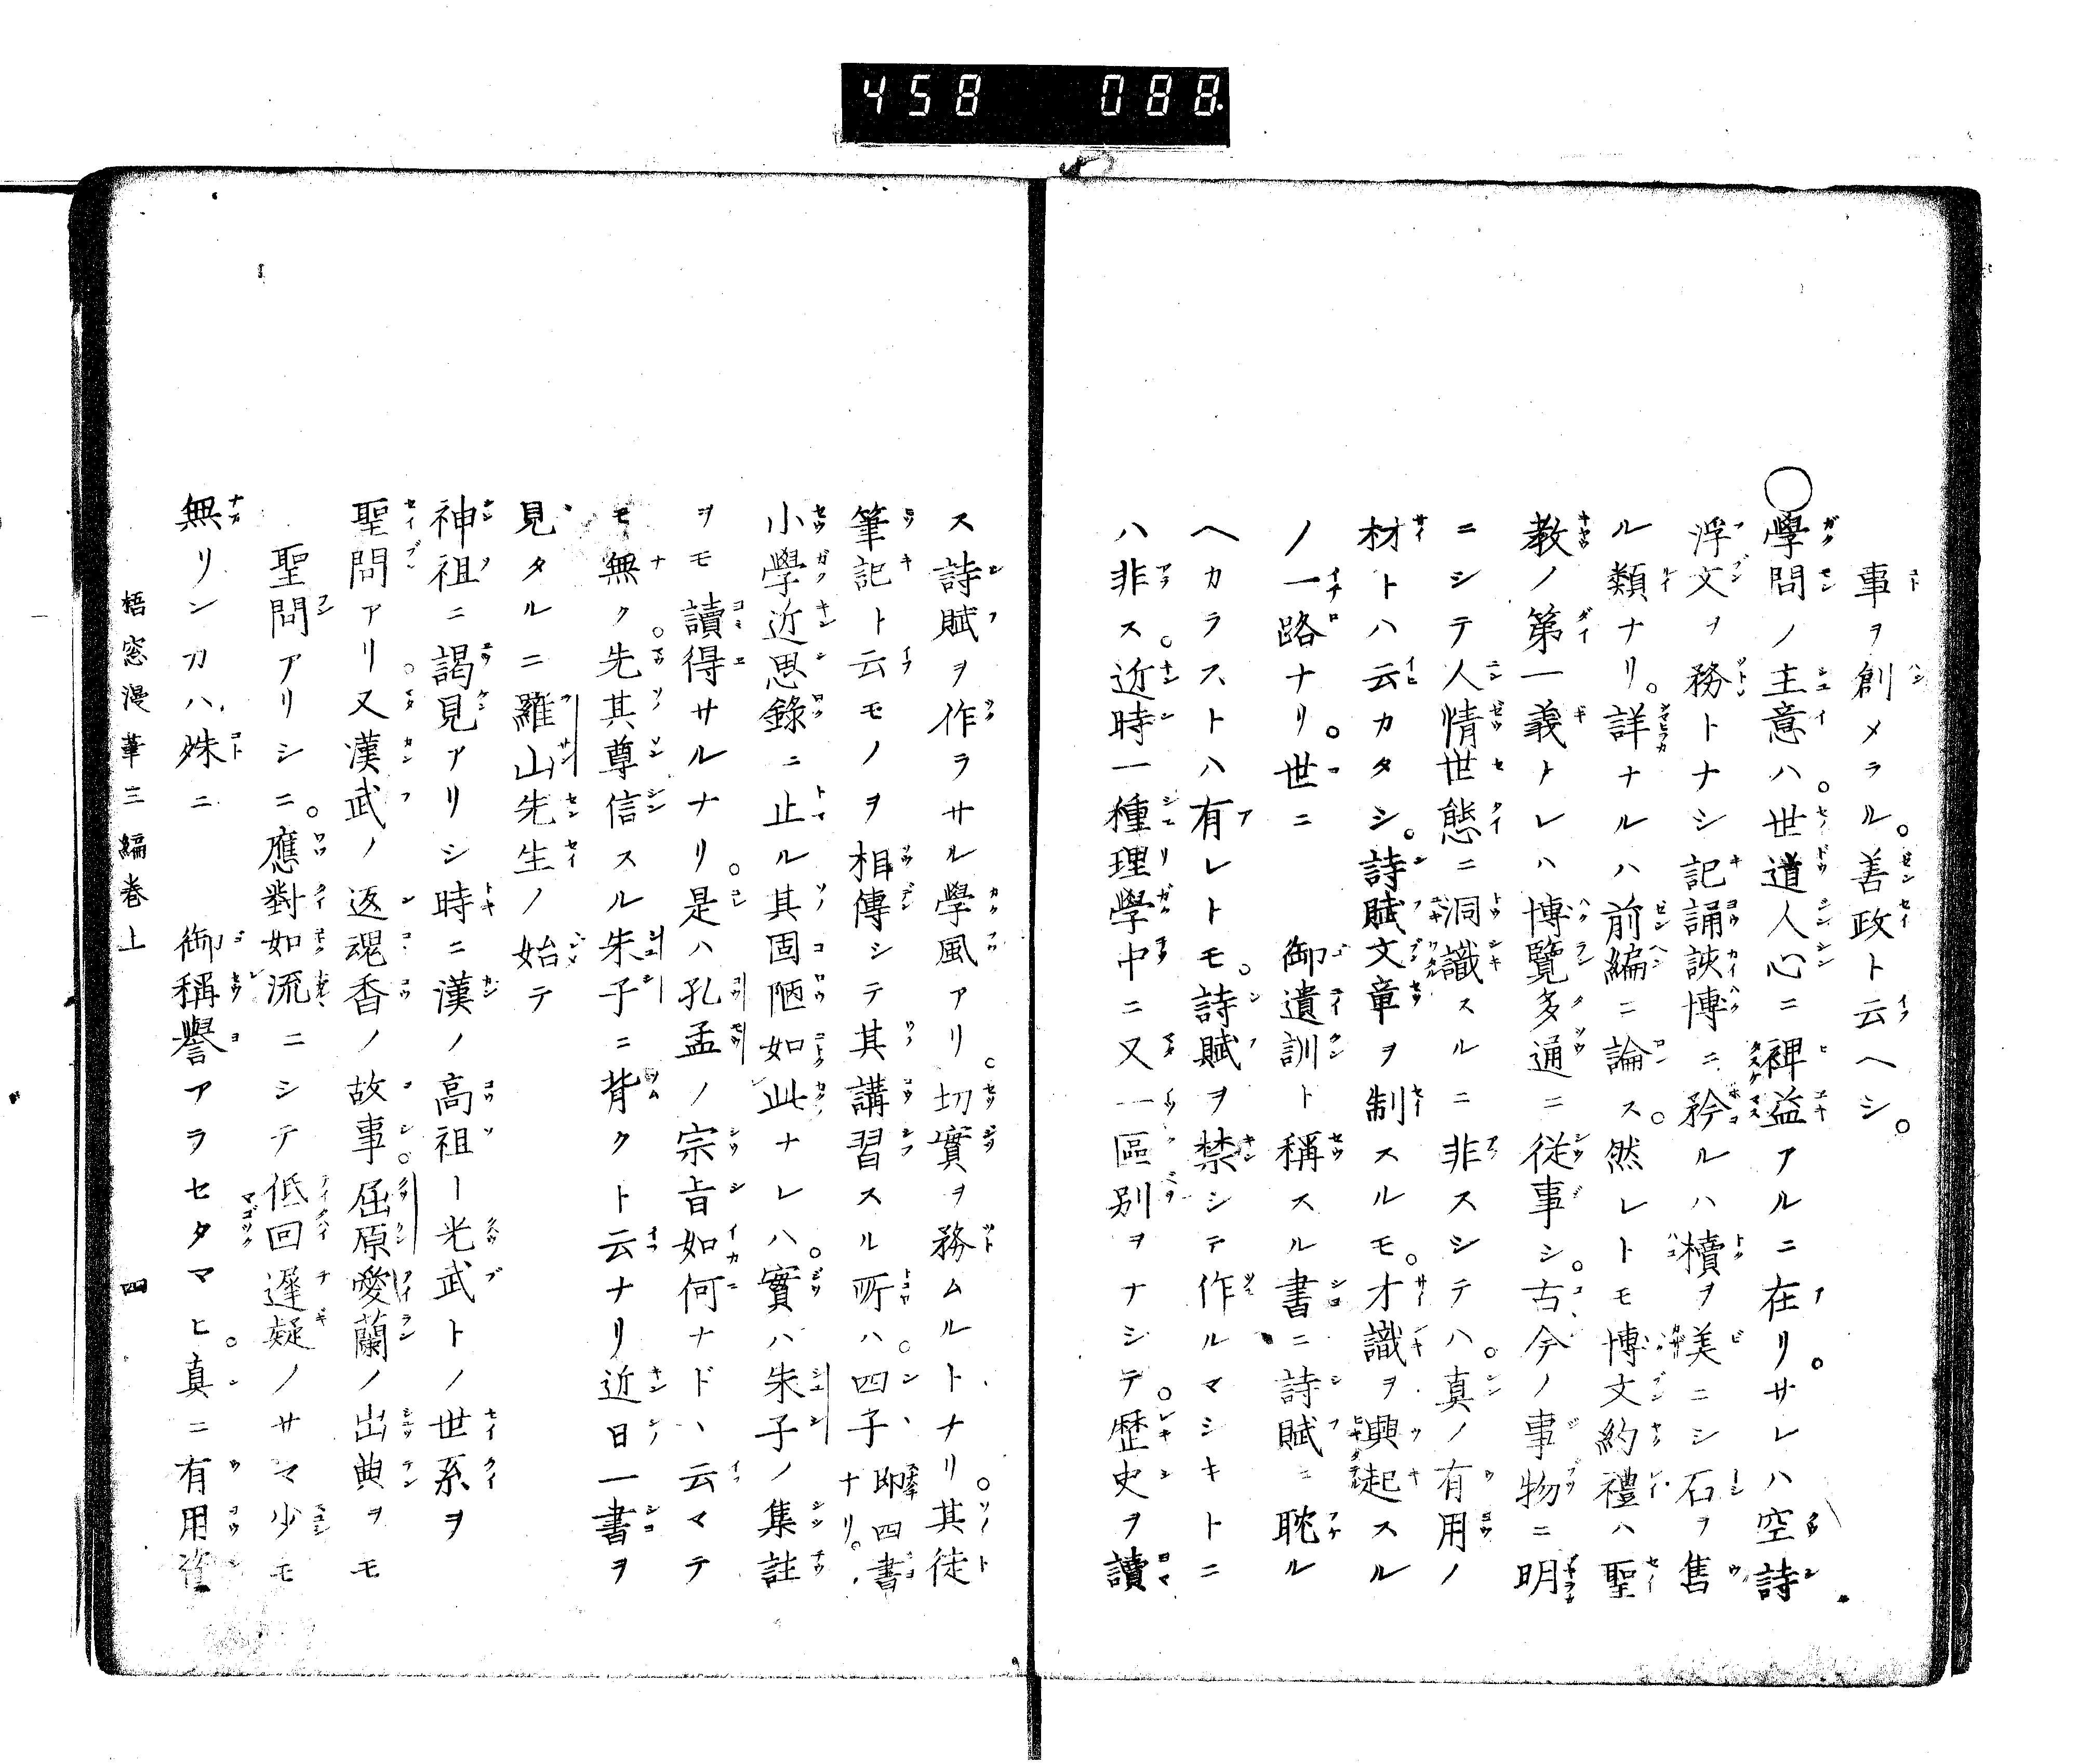 458 088.
事ヲ創メラル。善政ト云ヘシ。
○學問ノ主意ハ。世道人心ニ裨益アルニ在リ。サレハ空詩
浮文ヲ務トナシ記誦該博ニ矜ルハ櫝ヲ美ニシ石ヲ售
ル類ナリ。詳ナルハ前編ニ論ス。然レトモ博文約禮ハ聖
教ノ第一義トレハ博覽多通ニ従事シ。古今ノ事物ニ明
ニシテ人情世態ニ洞識スルニ非スシテハ。真ノ有用ノ
材トハ云カタシ。詩賦文章ヲ制スルモ。才識ヲ興起スル
ノ一路ナリ。世ニ 御遺訓ト稱スル書ニ詩賦ニ耽ル
ヘカラストハ有レトモ。詩賦ヲ禁シテ作ルマシキトニ
ハ非ス。近時一種理學中ニ又一區別ヲナシテ。歴史ヲ讀
ス詩賦ヲ作ラサル學風アリ。切實ヲ務ムルトナリ。其徒
筆記ト云モノヲ相傳シテ其講習スル所ハ。四子即四書ナリ。
小學近思錄ニ止ル其固陋如此ナレハ。實ハ朱子ノ集註
ヲモ讀得サルナリ。是ハ孔孟ノ宗旨如何ナドヽ云マテ
モ無ク。先其尊信スル朱子ニ背クト云ナリ近日一書ヲ
見タルニ羅山先生ノ始テ
神祖ニ謁見アリシ時ニ漢ノ高祖ー光武トノ世系ヲ
聖問アリ。又漢武ノ返魂香ノ故事。屈原愛蘭ノ出典ヲモ
聖問アリシニ。應對如流ニシテ低回遲疑ノサマ少モ
無リンカハ殊ニ 御稱譽アラセタマヒ。真ニ有用
梧窓漫筆三編巻上 四